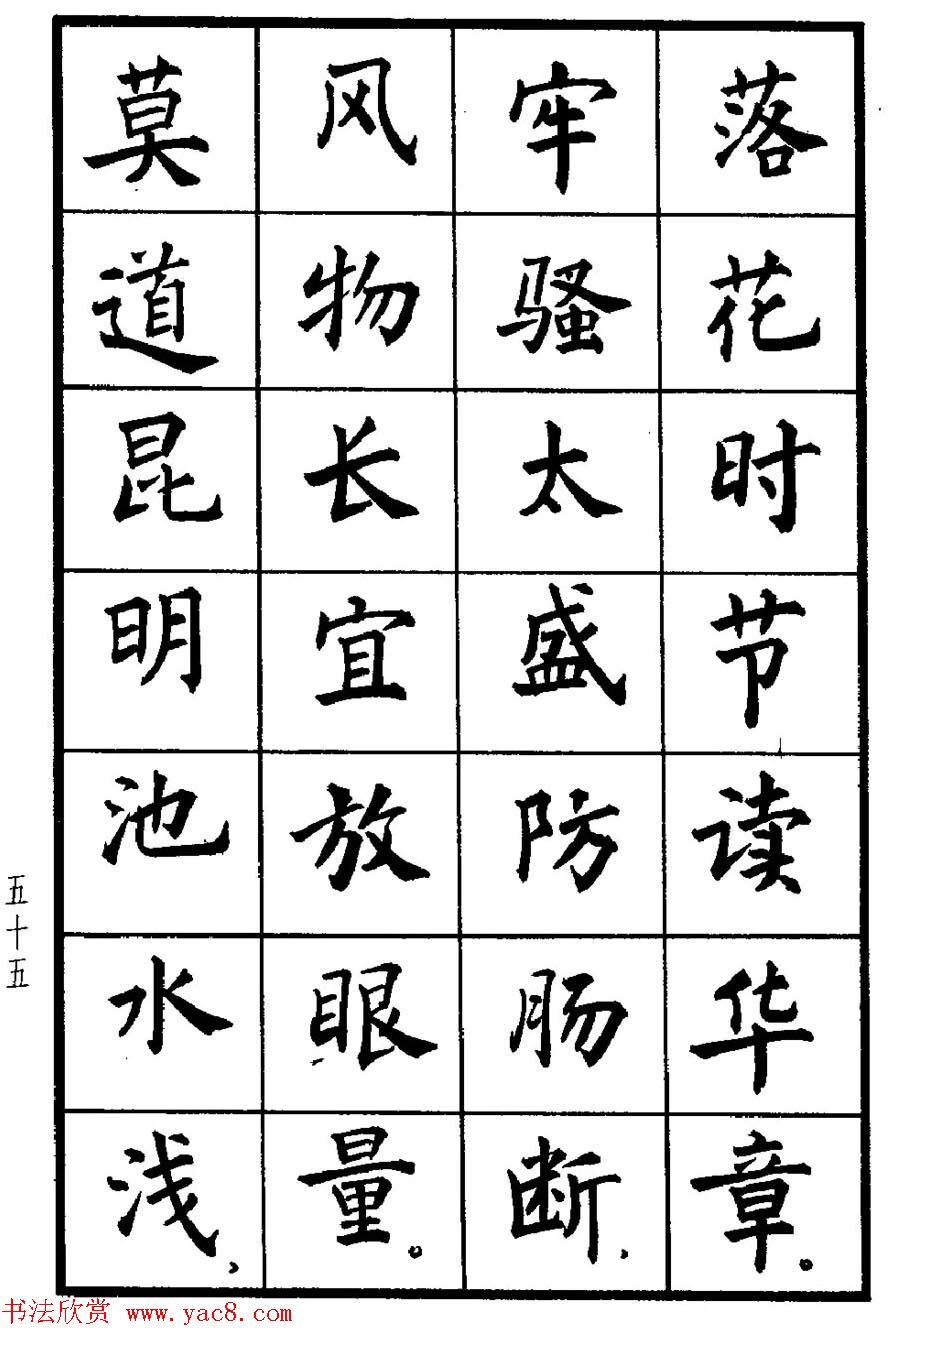 落花时节读华章。
牢骚太盛防肠断,
风物长宜放眼量。
莫道昆明池水浅,
五十五
书法欣赏 www.yac8.com